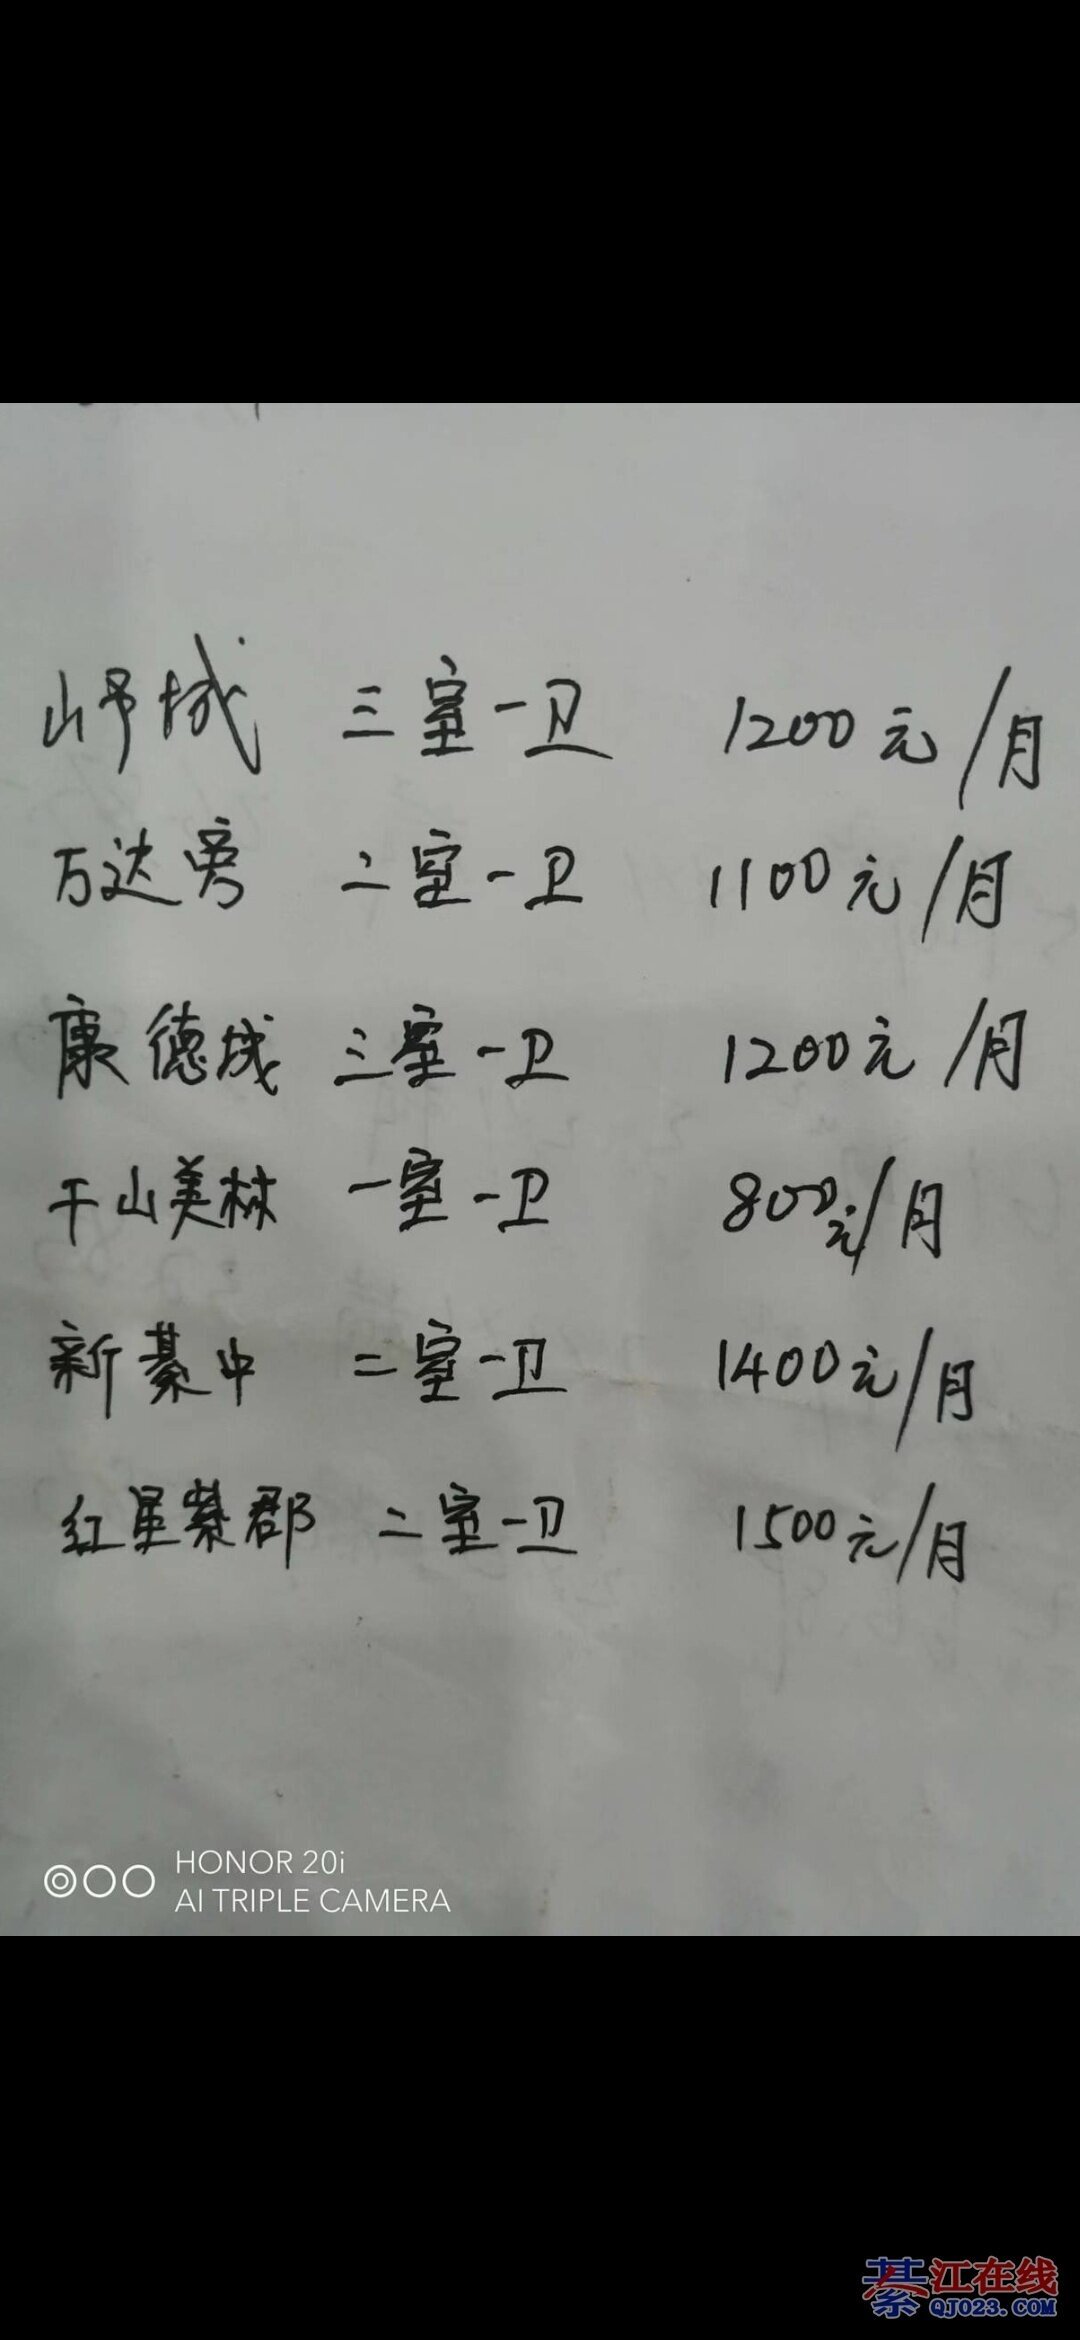 山予城 三室一卫 1200元/月
万达旁 二室一卫 1100元/月
康德城 三室一卫 1200元/月
千山美林 一室一卫 800元/月
新綦中 二室一卫 1400元/月
红星紫郡 二室一卫 1500元/月
HONOR 20i
AI TRIPLE CAMERA
綦江在线
QJ023.COM